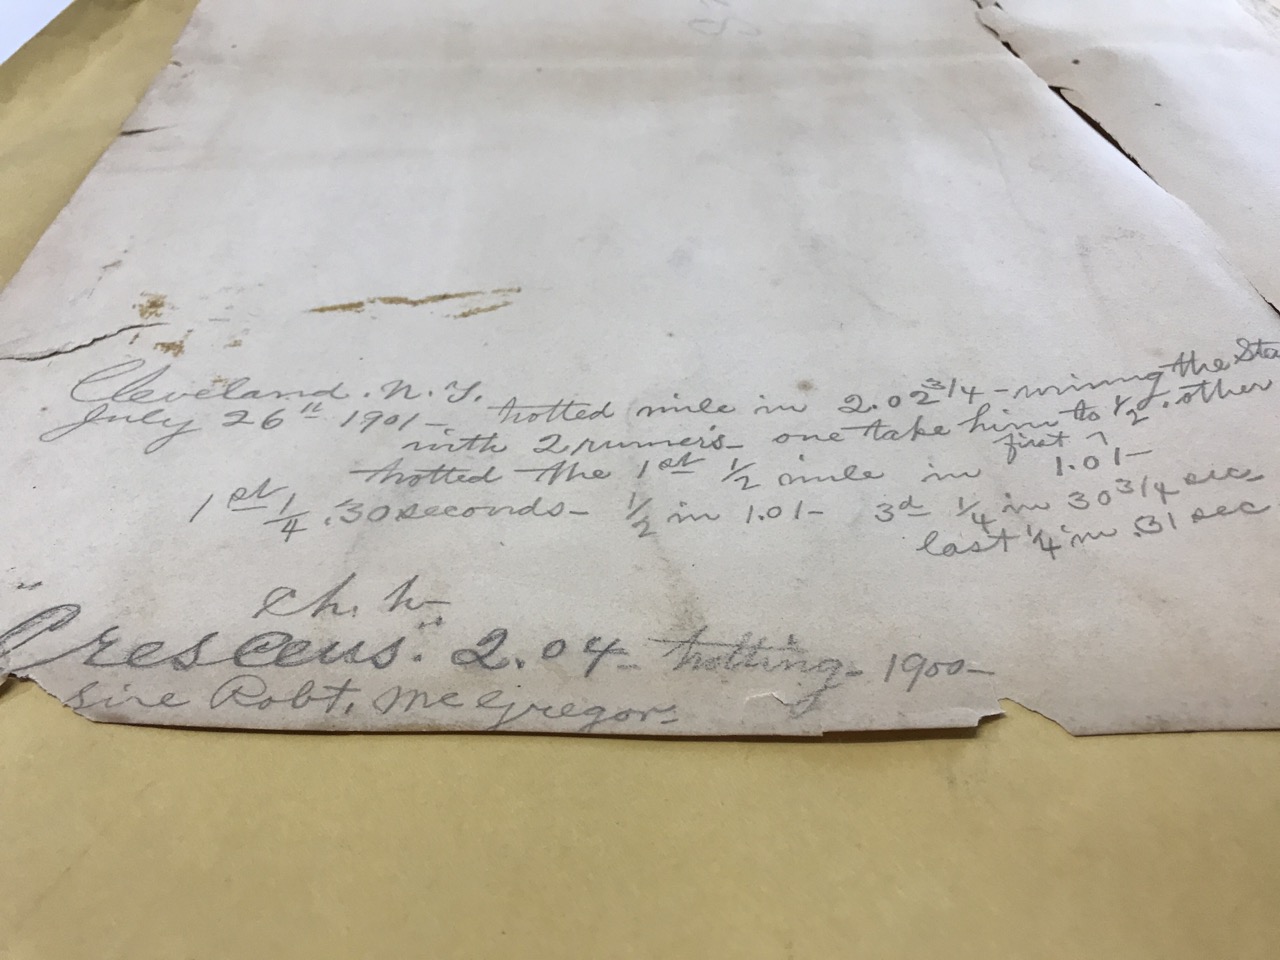 Cleveland. N. Y.
July 26th 1901 - trotted mile in 2.02 3/4 - wining the
with 2 runners - one take him to first 1/2. other
trotted the 1st 1/2 mile in 1.01 -
1st 1/4 .30 seconds - 1/2 in 1.01 - 3d 1/4 in 30 3/4 sec
last 1/4 in .31 sec
Ch. h -
"Cresceus." 2.04 - trotting - 1900 -
sire Robt. McGregor -